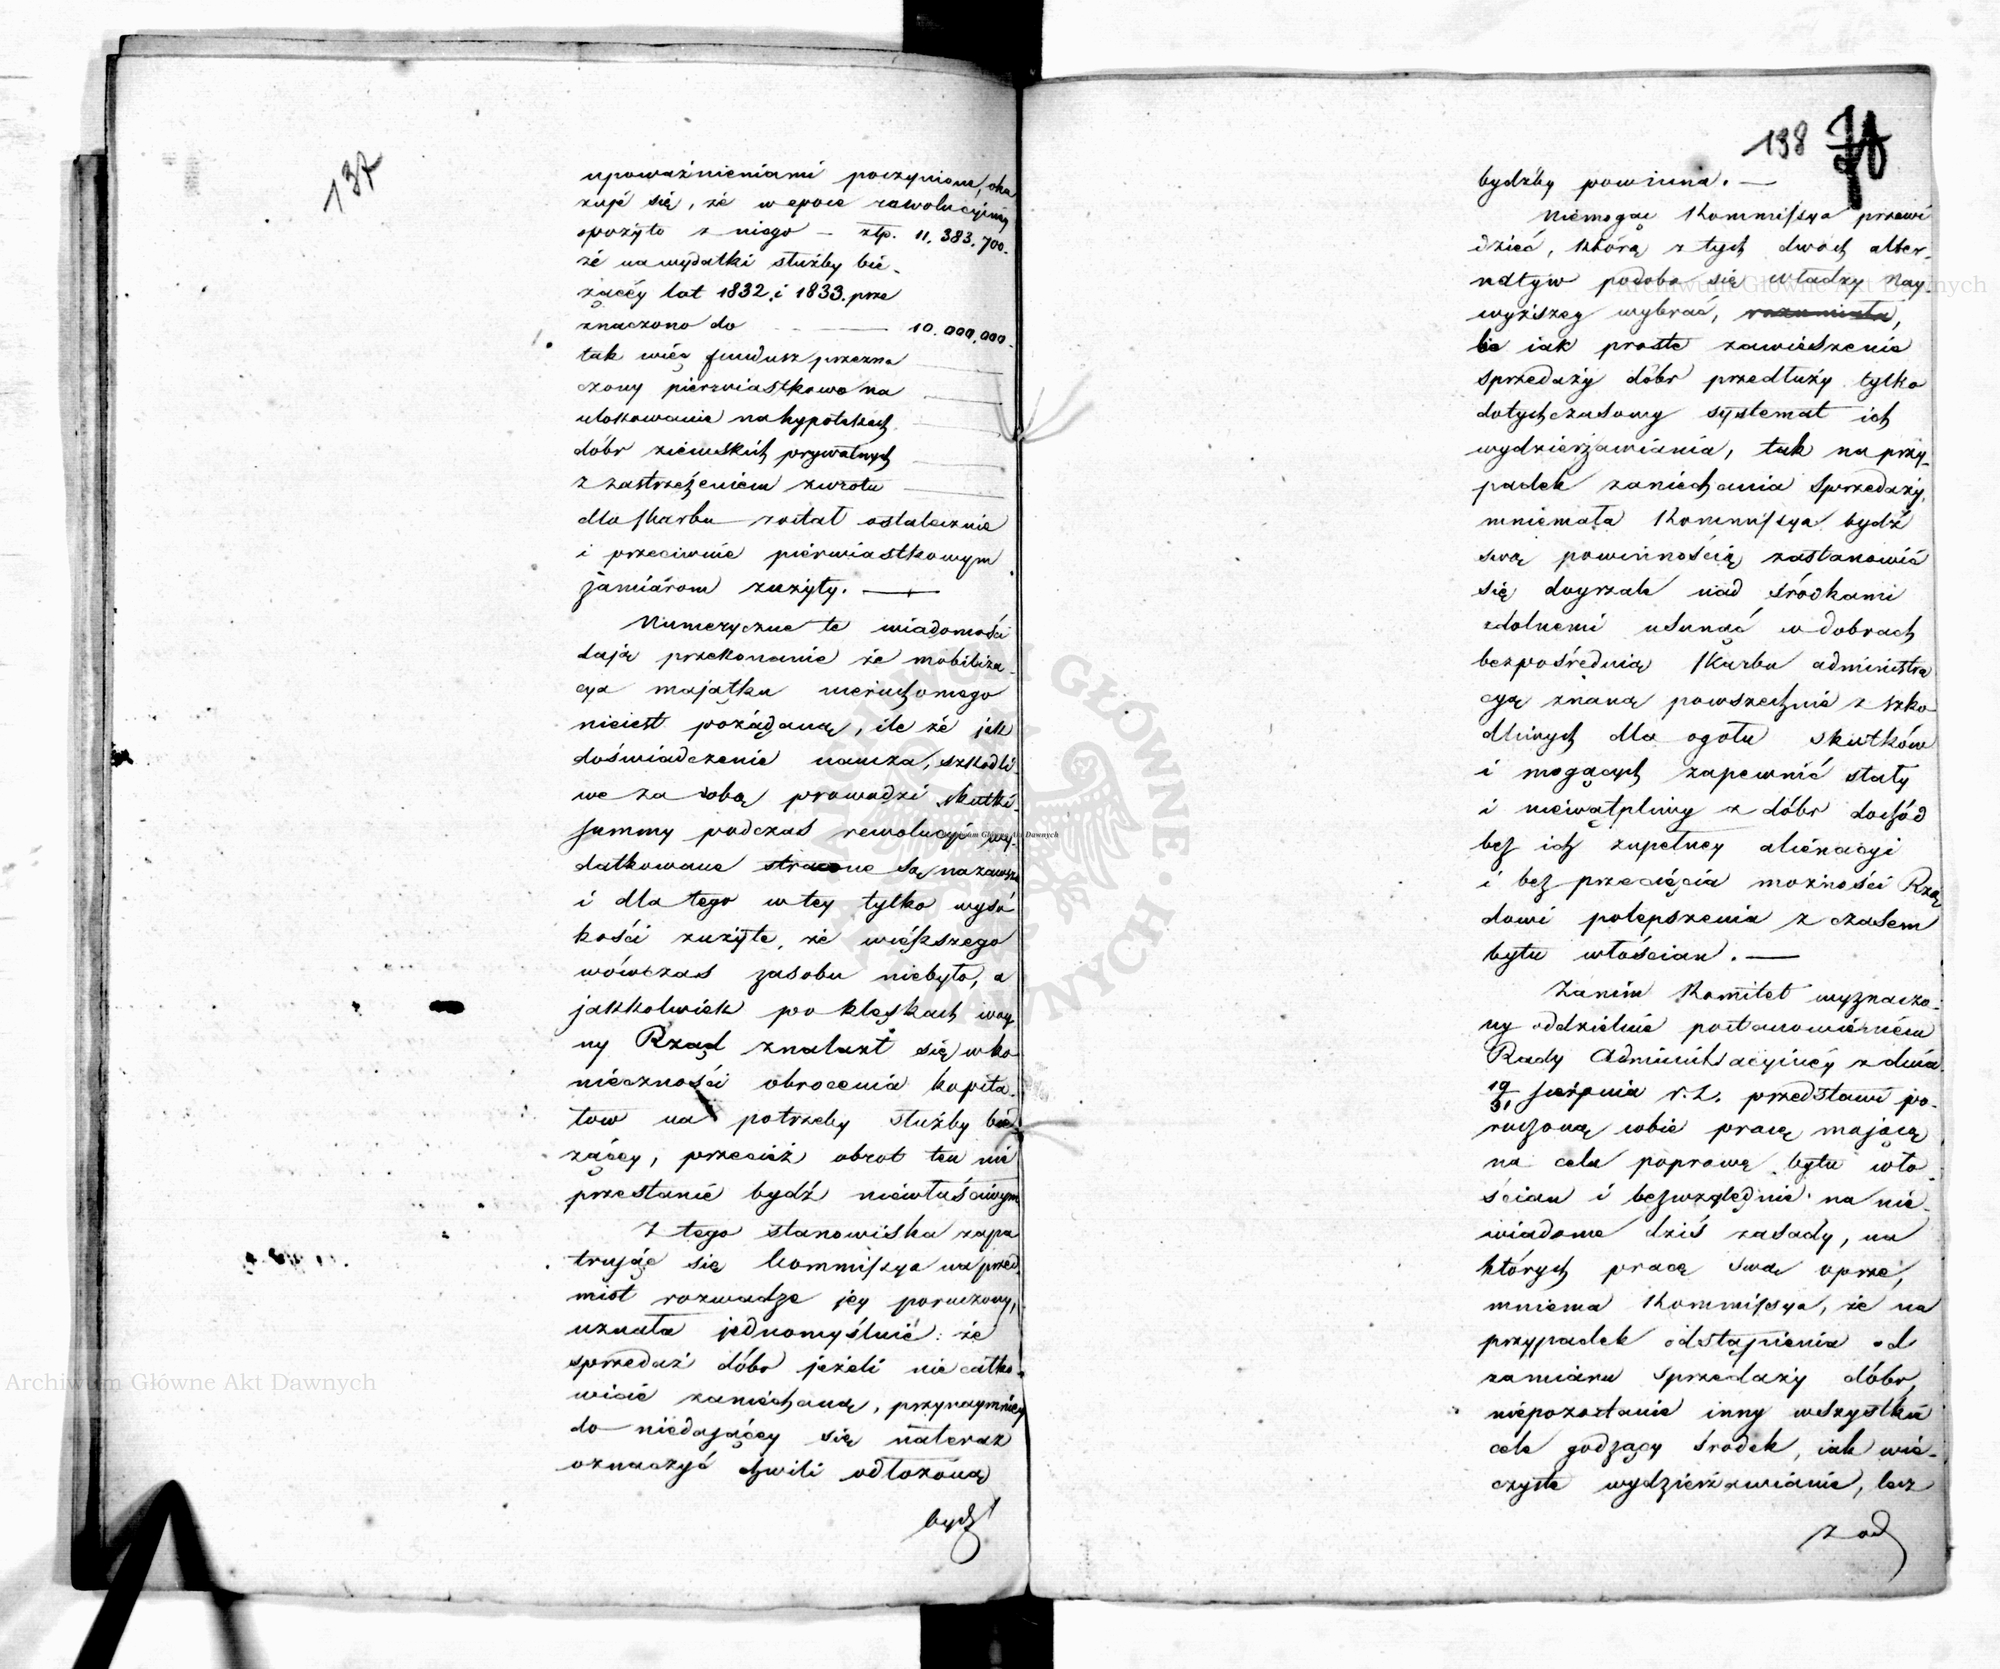 137
upoważnieniami poczynione, oka
zuje się, że w epoce rewolucyiney
spożyto z niego — złp. 11,383,700.
że na wydatki służby bie-
żącéy lat 1832 i 1833. prze
znaczono do — 10.000,000.
tak więc fundusz przezna
czony pierwiastkowo na
ulokowanie na hypotekach
dóbr ziemskich prywatnych
z zastrzeżeniem zwrotu
dla skarbu został ostatecznie
i przeciwnie pierwiastkowym
zamiarom zużyty. —
Numeryczne te wiadomości
dają przekonanie że mobiliza-
cya majątku nieruchomego
nieiest pożądaną, ile że jak
doświadczenie naucza, szkodli-
we za sobą prowadzi skutki.
Summy podczas rewolucyi wy-
datkowane stracone są na zawsze
i dla tego w tey tylko wyso
kości zużyte, że większego
wówczas zasobu niebyło, a
jakkolwiek po klęskach woy
ny Rząd znalazł się w ko
nieczności obrocenia kapita-
łow na potrzeby służby bie
żącey, przecież obrot ten nie
przestanie bydź niewłaściwym
Z tego stanowiska zapa
trując się Kommissya na przed-
miot rozwadze jey poruczony,
uznała jednomyślnie: że
sprzedaż dóbr jeżeli nie całko-
wicie zaniechaną, przynaymniey
do niedającey się nateraz
oznaczyć chwili odłożoną
bydź
138
bydźby powinna. —
Niemogąc Kommissya przewi
dzieć, którą z tych dwóch alter-
natyw podoba się władzy Nay-
wyższey wybrać,
ile iak proste zawieszenie
sprzedaży dóbr przedłuży tylko
dotychczasowy systemat ich
wydzierżawiania, tak na przy-
padek zaniechania sprzedaży,
mniemała Kommissya bydź
swą powinnością zastanowić
się doyrzale nad środkami
zdolnemi usunąć w dobrach
bezpośrednią Skarbu administra
cyą znaną powszechnie z szko
dliwych dla ogołu skutków
i mogących zapewnić stały
i niewątpliwy z dóbr dochód
bez ich zupełney alienacyi
i bez przecięcia możności Rzą
dowi polepszenia z czasem
bytu włościan. —
Zanim Komitet wyznaczo-
ny oddzielnie postanowieniem
Rady Administracyinéy z dnia
19/31 Sierpnia r. z. przedstawi po-
ruczoną sobie pracę mającą
na celu poprawę bytu wło-
ścian i bezwzględnie na nie-
wiadome dziś zasady, na
których pracę swą oprze,
mniema Kommissya, że na
przypadek odstąpienia od
zamiaru sprzedaży dóbr,
niepozostanie inny wszystkie
cele godzący środek, iak wie-
czyste wydzierżawianie, lecz
z od
Archiwum Główne Akt Dawnych
Archiwum Główne Akt Dawnych
Archiwum Główne Akt Dawnych